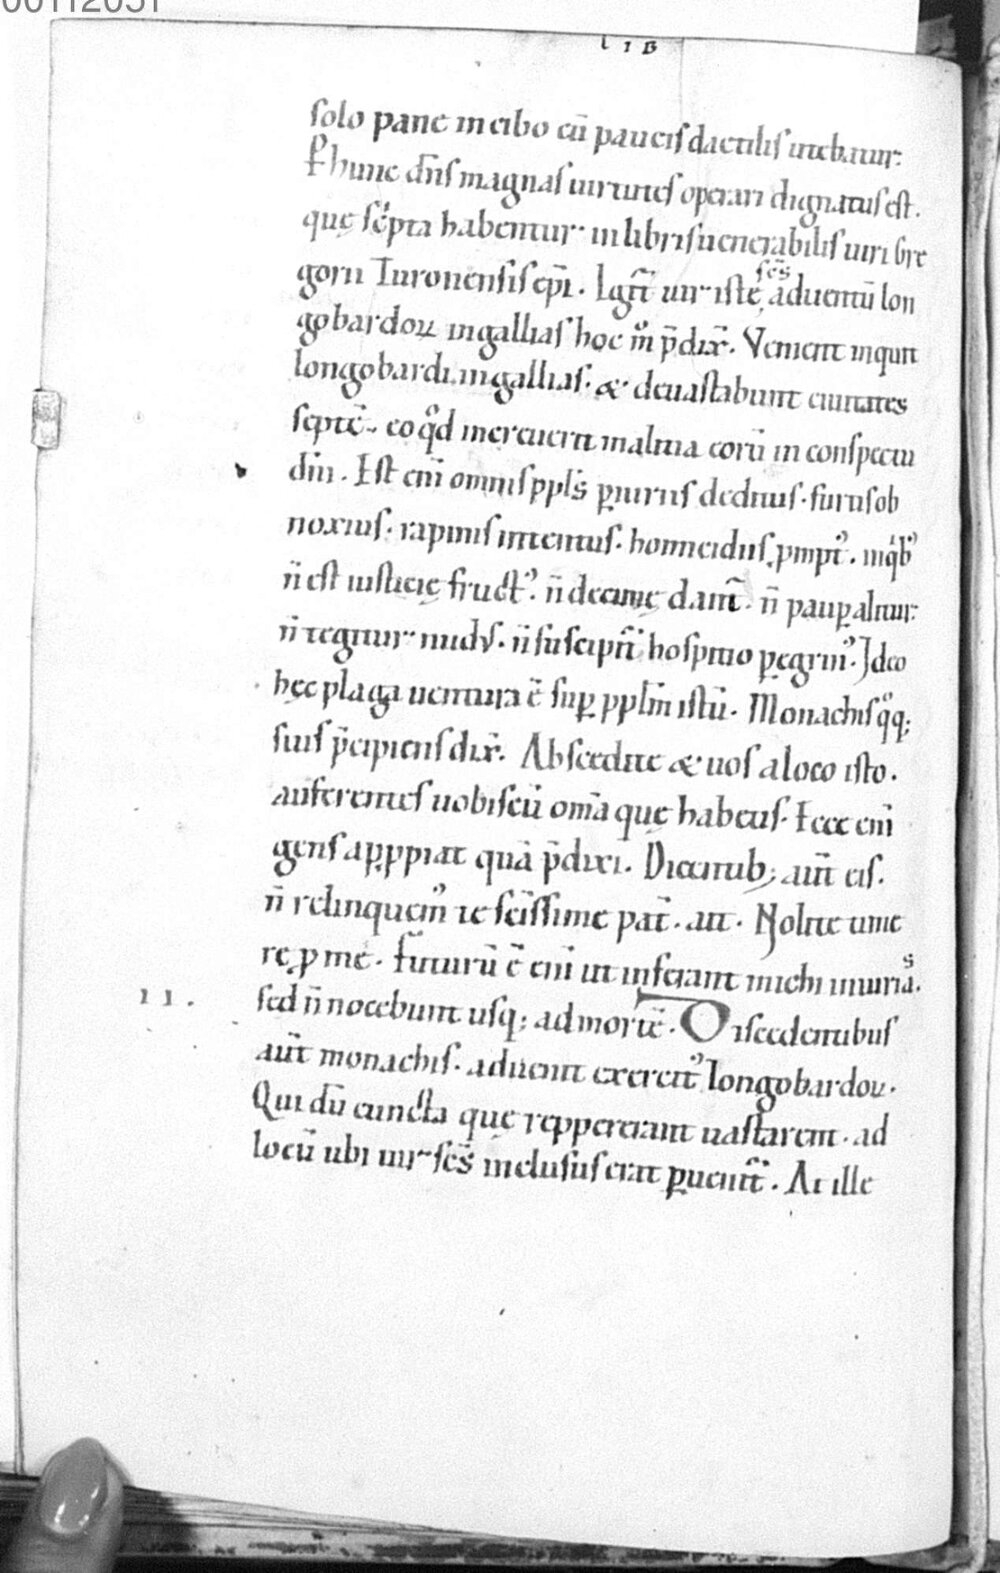 LIB
solo pane in cibo cū paucis dactilis utebatur.
P hunc dn̄s magnas uirtutes operari dignatus est.
quę sc̓pta habentur in libris uenerabilis uiri Gre
gorii Turonensis ep̄i. Igit̄ uir iste sc̄s aduentū lon
gobardoꝝ in gallias hoc m̊ p̄dix̄. Venient inquit
longobardi in gallias. & deuastabunt ciuitates
septē. eo qd̊ increuerit malitia eorū in conspectu
dn̄i. Est eni̅ omnis ppl̄s ꝑiuriis deditus. furtis ob
noxius. rapinis intentus. homicidiis ꝓmpt᾿. in qͥb᾿
n̄ est iusticię fruct᾿. n̄ decimę dant̄. n̄ pauꝑ alitur.
n̄ tegitur nudus. n̄ suscipit̄ hospitio ꝑegrin᾿. Ideo
hęc plaga uentura ē suꝑ ppl̄m istū. Monachis qͦq;
suis p̄cipiens dix̄. Abscedite & uos a loco isto.
auferentes uobiscū om̄a quę habetis. Ecce eni̅
gens apꝓpiat quā p̄dixi. Dicentib; aut̄ eis.
n̄ relinquem᾿ te sc̄issime pat̄. ait. Nolite time
re ꝓ me. Futurū ē eni̅ ut inferant michi iniurias.
II.
sed n̄ nocebunt usq; ad mortē. Discedentibus
aut̄ monachis. aduenit exercit᾿ longobardoꝝ.
Qui dū cuncta quę reppererant uastarent. ad
locū ubi uir sc̄s inclusus erat ꝑuenit̄. At ille